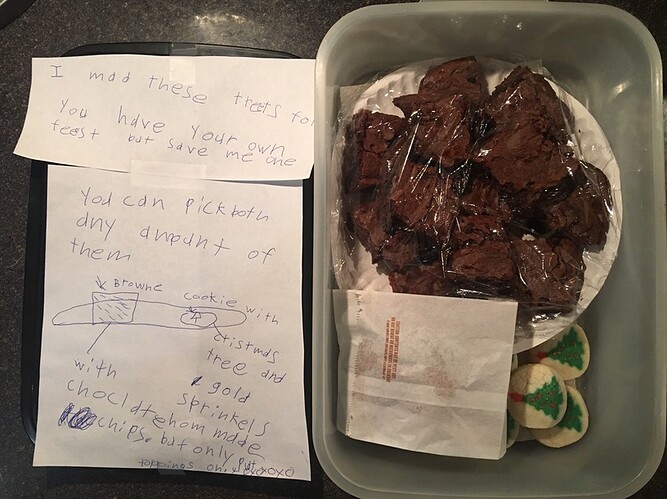 I mad these treets for
you have your own
feest but save me one
You can pick both
any amount of
them
Browne
cookie with
cristmas
tree and
gold
sprinkels
with
chocldte hom made
chips. but only put
toppings on
xoxo